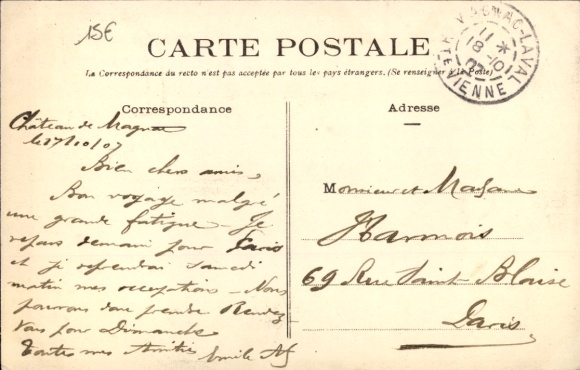 15€
CARTE POSTALE
La Correspondance du recto n'est pas acceptée par tous les pays étrangers. (Se renseigner à la Poste)
MAGNAC-LAVAL
11 *
18-10
07
HTE VIENNE
Correspondance
Adresse
Château de Magnac
le 17/10/07
Bien chers amis,
Bon voyage malgré
une grande fatigue - Je
repars demain pour Paris
et je reprendrai samedi
matin mes occupations - Nous
pouvons donc prendre Rendez
Vous pour Dimanche
Toutes mes Amitiés Emile
Monsieur et Madame
Harmois
69 Rue Saint-Blaise
Paris